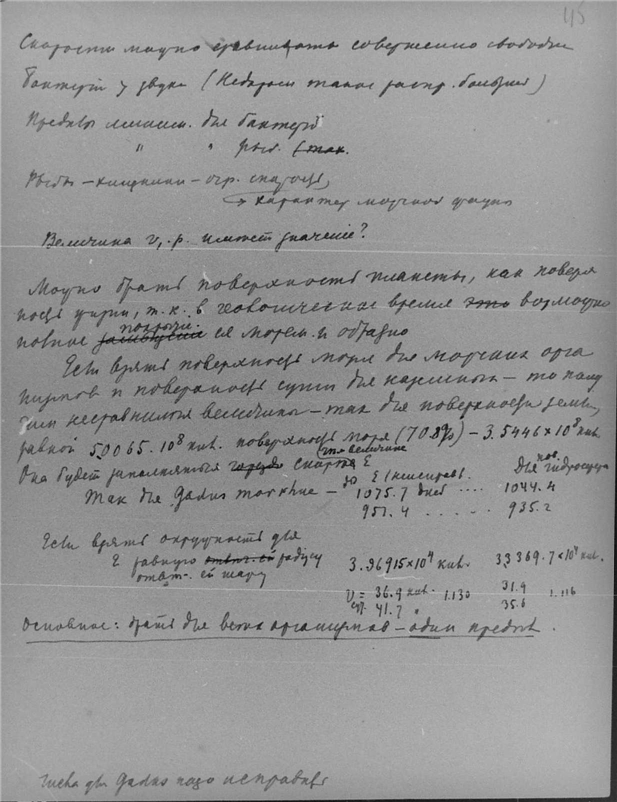 45
Скорости можно сравнивать совершенно свободно
Бактерий у звука (Недаром такое распр. большое)
Пределы жизни. для бактерий
" " рыб. (так.
Рыбы – хищники – огр. скорость,
→ характер морской фауны
Величина v,.р. имеет значение?
Можно брать поверхность планеты, как поверх
ность суши, т.к. в геологическое время это возможно
полное покрытие ее морем и обратно
Если взять поверхность моря для морских орга
низмов и поверхность суши для наземных – то полу
чим несравнимые величины – так для поверхности земли,
равной 50065.10⁸ кив. поверхность моря (70.8%) – 3.5446×10⁸ кив.
Она будет заполняться скорее
Так для Gadus morrhue – 1075.7 дней .... 1044.4
951.4 . . . . . . 935.2
Если взять окружность для
E равную радиусу
ответ. ей шару 3.96915×10⁴ кив. 33369.7×10⁴ кив.
V = 36.9 кив. 1.130 31.4 1.116
41.7 " 35.6
Основное: брать для всех организмов – один предел.
Числа для Gadus надо исправить